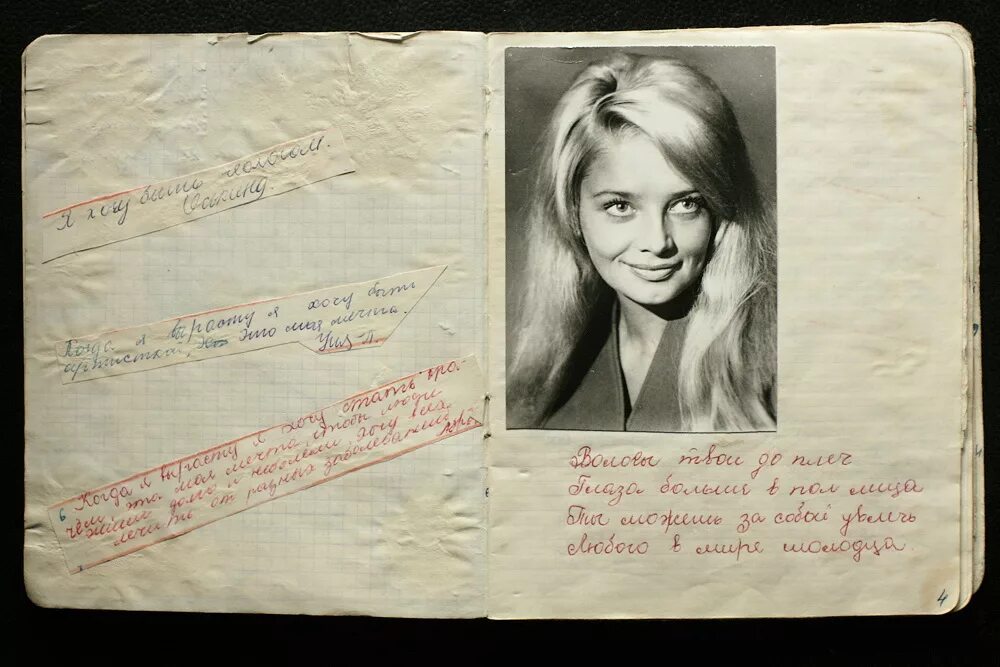 Я хочу быть
Когда я вырасту я хочу быть
артисткой, Это моя мечта.
Когда я вырасту я хочу стать вра-
чём эта моя мечта чтобы люди
жили долго и не болели хочу всех
лечить от разных заболеваний
Волосы твои до плеч
Глаза больше в пол лица
Ты можешь за собой увлечь
Любого в мире молодца.
4